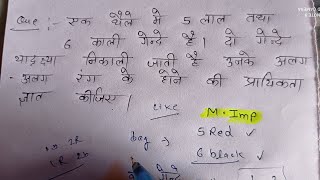 Que : एक थैले मे 5 लाल तथा
6 काली गेन्दे है। दो गेन्दे
निकाली जाती है उनके अलग
- अलग रंग के होने की प्रायिकता
ज्ञात कीजिए।
Like
M. Imp
bag → 5 Red ✓
6 black ✓